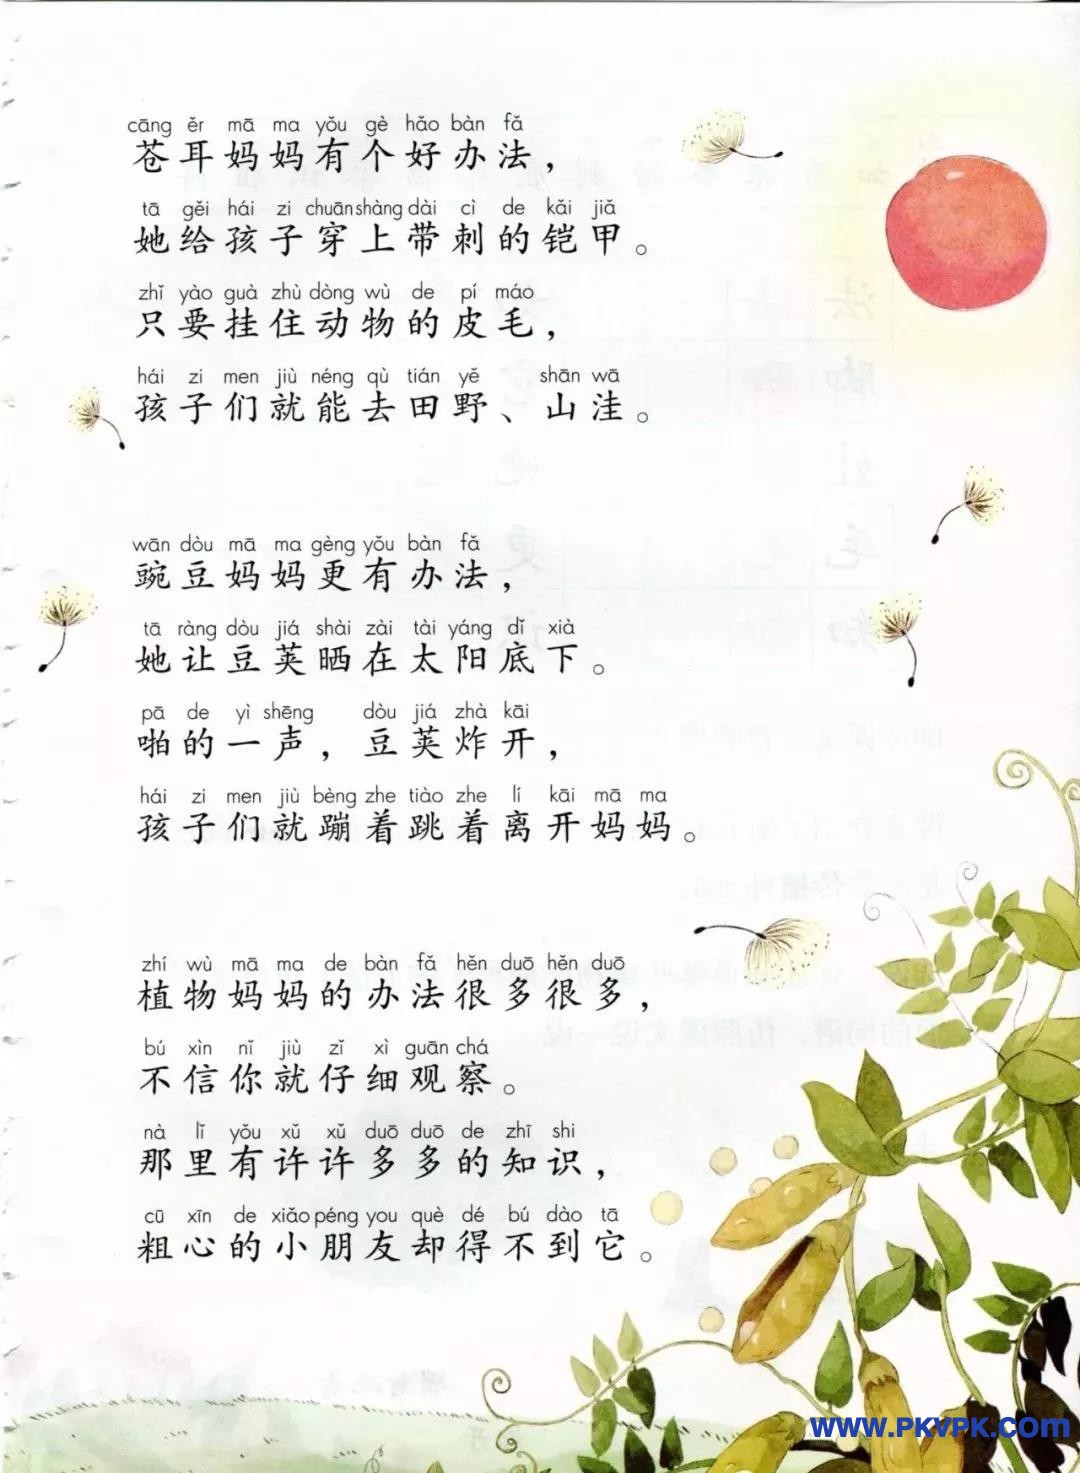 cāng ěr mā ma yǒu gè hǎo bàn fǎ
苍耳妈妈有个好办法，
tā gěi hái zi chuān shàng dài cì de kǎi jiǎ
她给孩子穿上带刺的铠甲。
zhǐ yào guà zhù dòng wù de pí máo
只要挂住动物的皮毛，
hái zi men jiù néng qù tián yě shān wā
孩子们就能去田野、山洼。
wān dòu mā ma gèng yǒu bàn fǎ
豌豆妈妈更有办法，
tā ràng dòu jiá shài zài tài yáng dǐ xià
她让豆荚晒在太阳底下。
pā de yì shēng dòu jiá zhà kāi
啪的一声，豆荚炸开，
hái zi men jiù bèng zhe tiào zhe lí kāi mā ma
孩子们就蹦着跳着离开妈妈。
zhí wù mā ma de bàn fǎ hěn duō hěn duō
植物妈妈的办法很多很多，
bú xìn nǐ jiù zǐ xì guān chá
不信你就仔细观察。
nà lǐ yǒu xǔ xǔ duō duō de zhī shi
那里有许许多多的知识，
cū xīn de xiǎo péng you què dé bú dào tā
粗心的小朋友却得不到它。
www.PKVPK.com